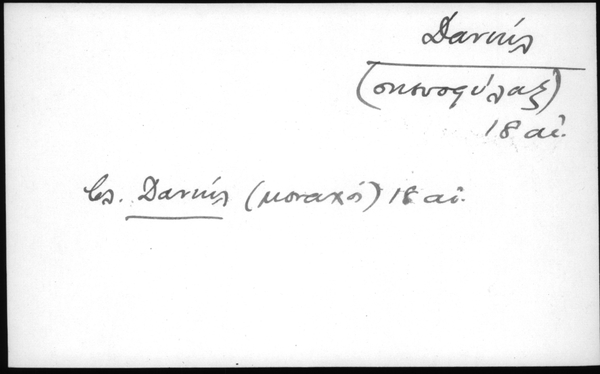 Δανιήλ
(σκευοφύλαξ)
18 αἰ.
βλ. Δανιήλ (μοναχός) 18 αἰ.